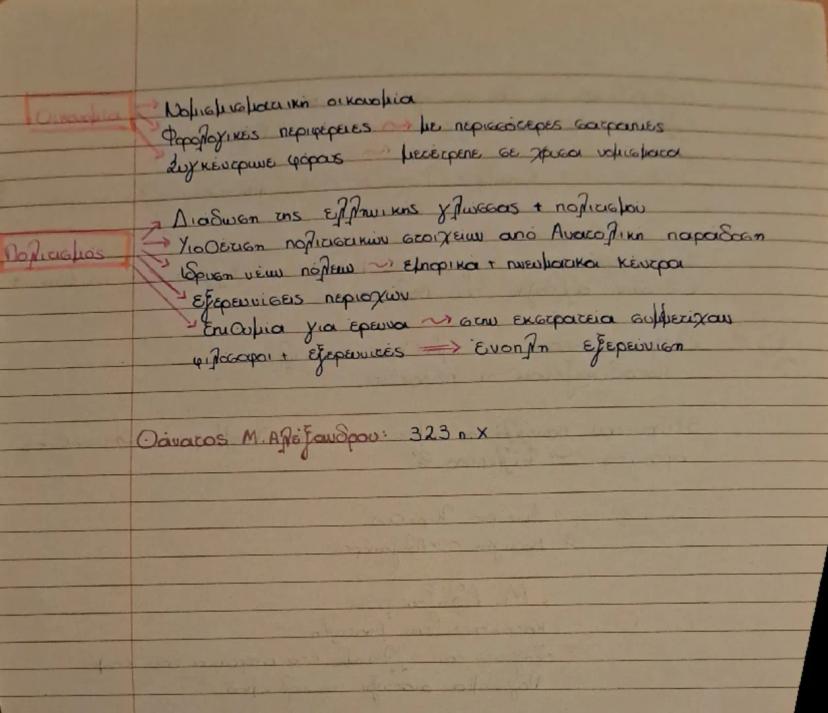 Οικονομία → Νομισμισματική οικονομία
→ Φορολογικές περιφέρειες → με περισσότερες σατραπιες
→ Συγκέντρωνε φόρους → μετέτρεπε σε χρυσα νομισματα
→ Διαδωση της ελληνικης γλωσσας + πολιτισμου
Πολιτισμός → Υιοθετιση πολιτιστικών στοιχειων από Ανατολικη παραδοση
→ ιδρυση νέων πόλεων → εμπορικα + πνευματικα κέντρα
→ εξερευνισεις περιοχών
→ Επιθυμια για έρευνα → στην εκστρατεια συμμετειχαν
φιλοσοφοι + εξερευνιτές ⇒ ένοπλη εξερεύνιση
Θάνατος Μ. Αλέξανδρου: 323 π.Χ